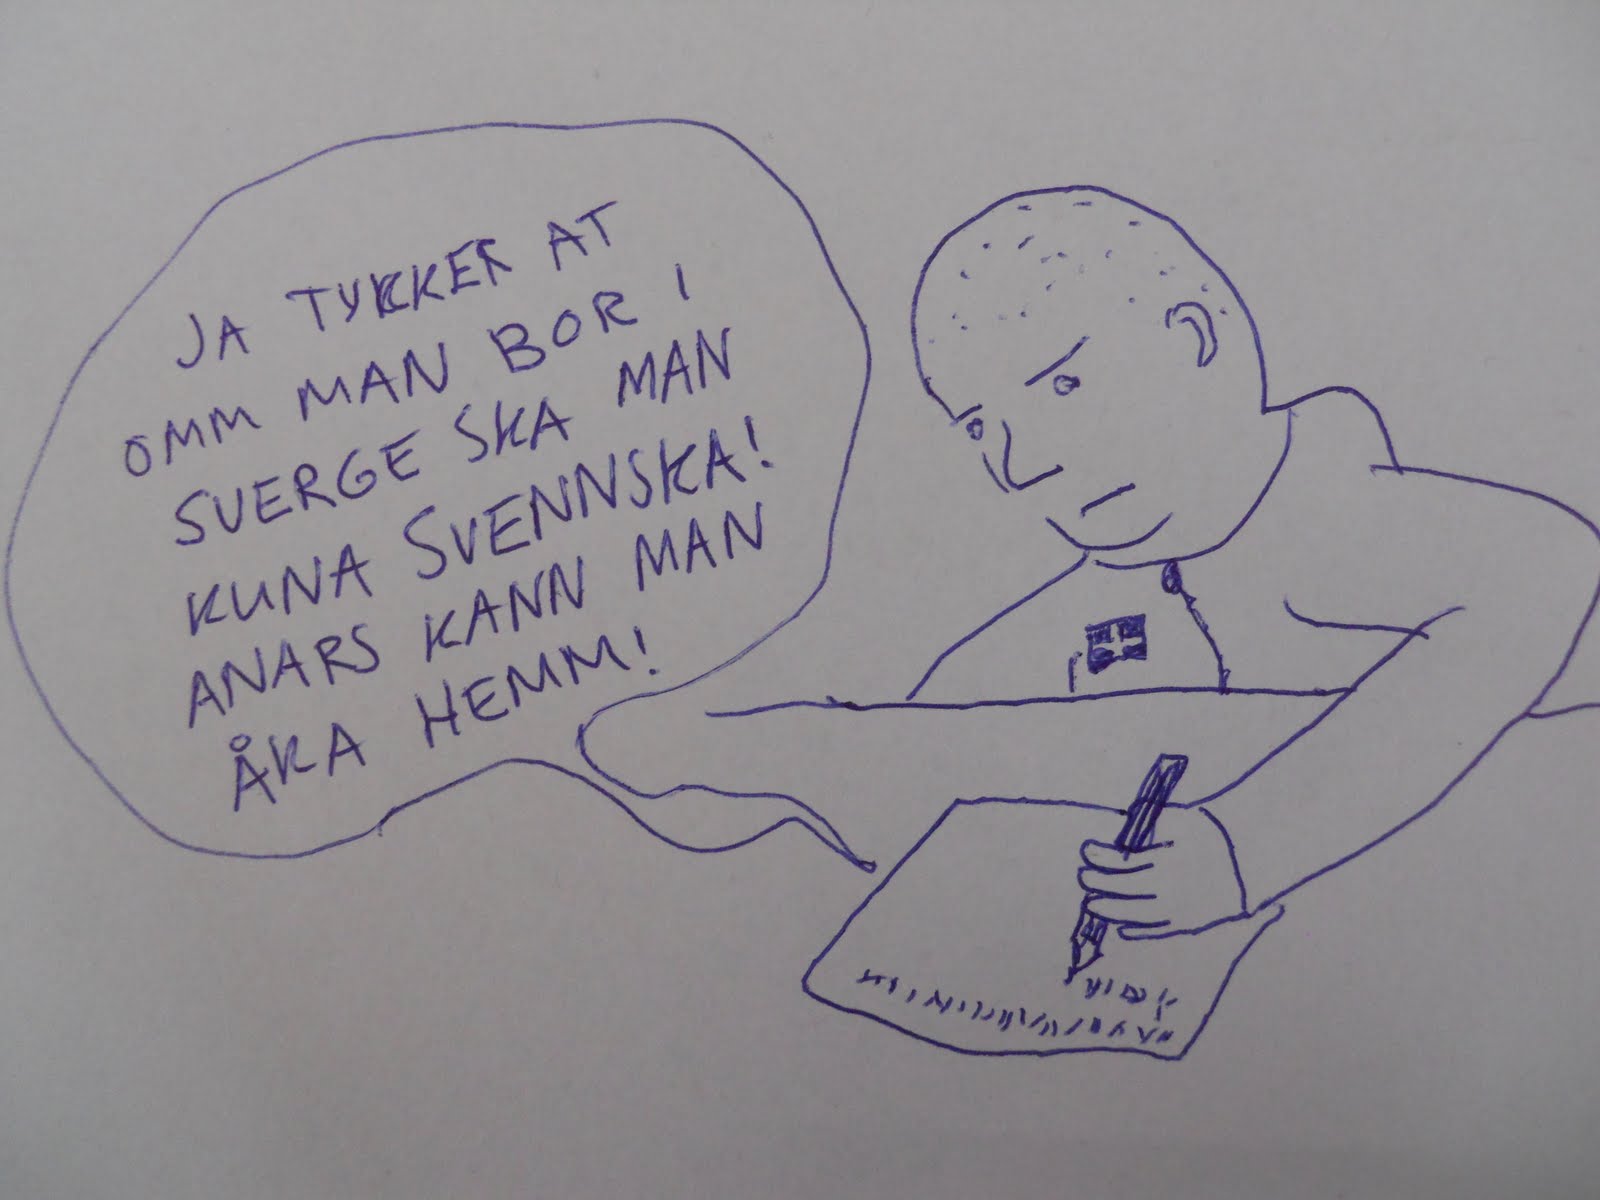 JA TYKKER AT
OMM MAN BOR I
SVERGE SKA MAN
KUNA SVENNSKA!
ANARS KANN MAN
ÅKA HEMM!